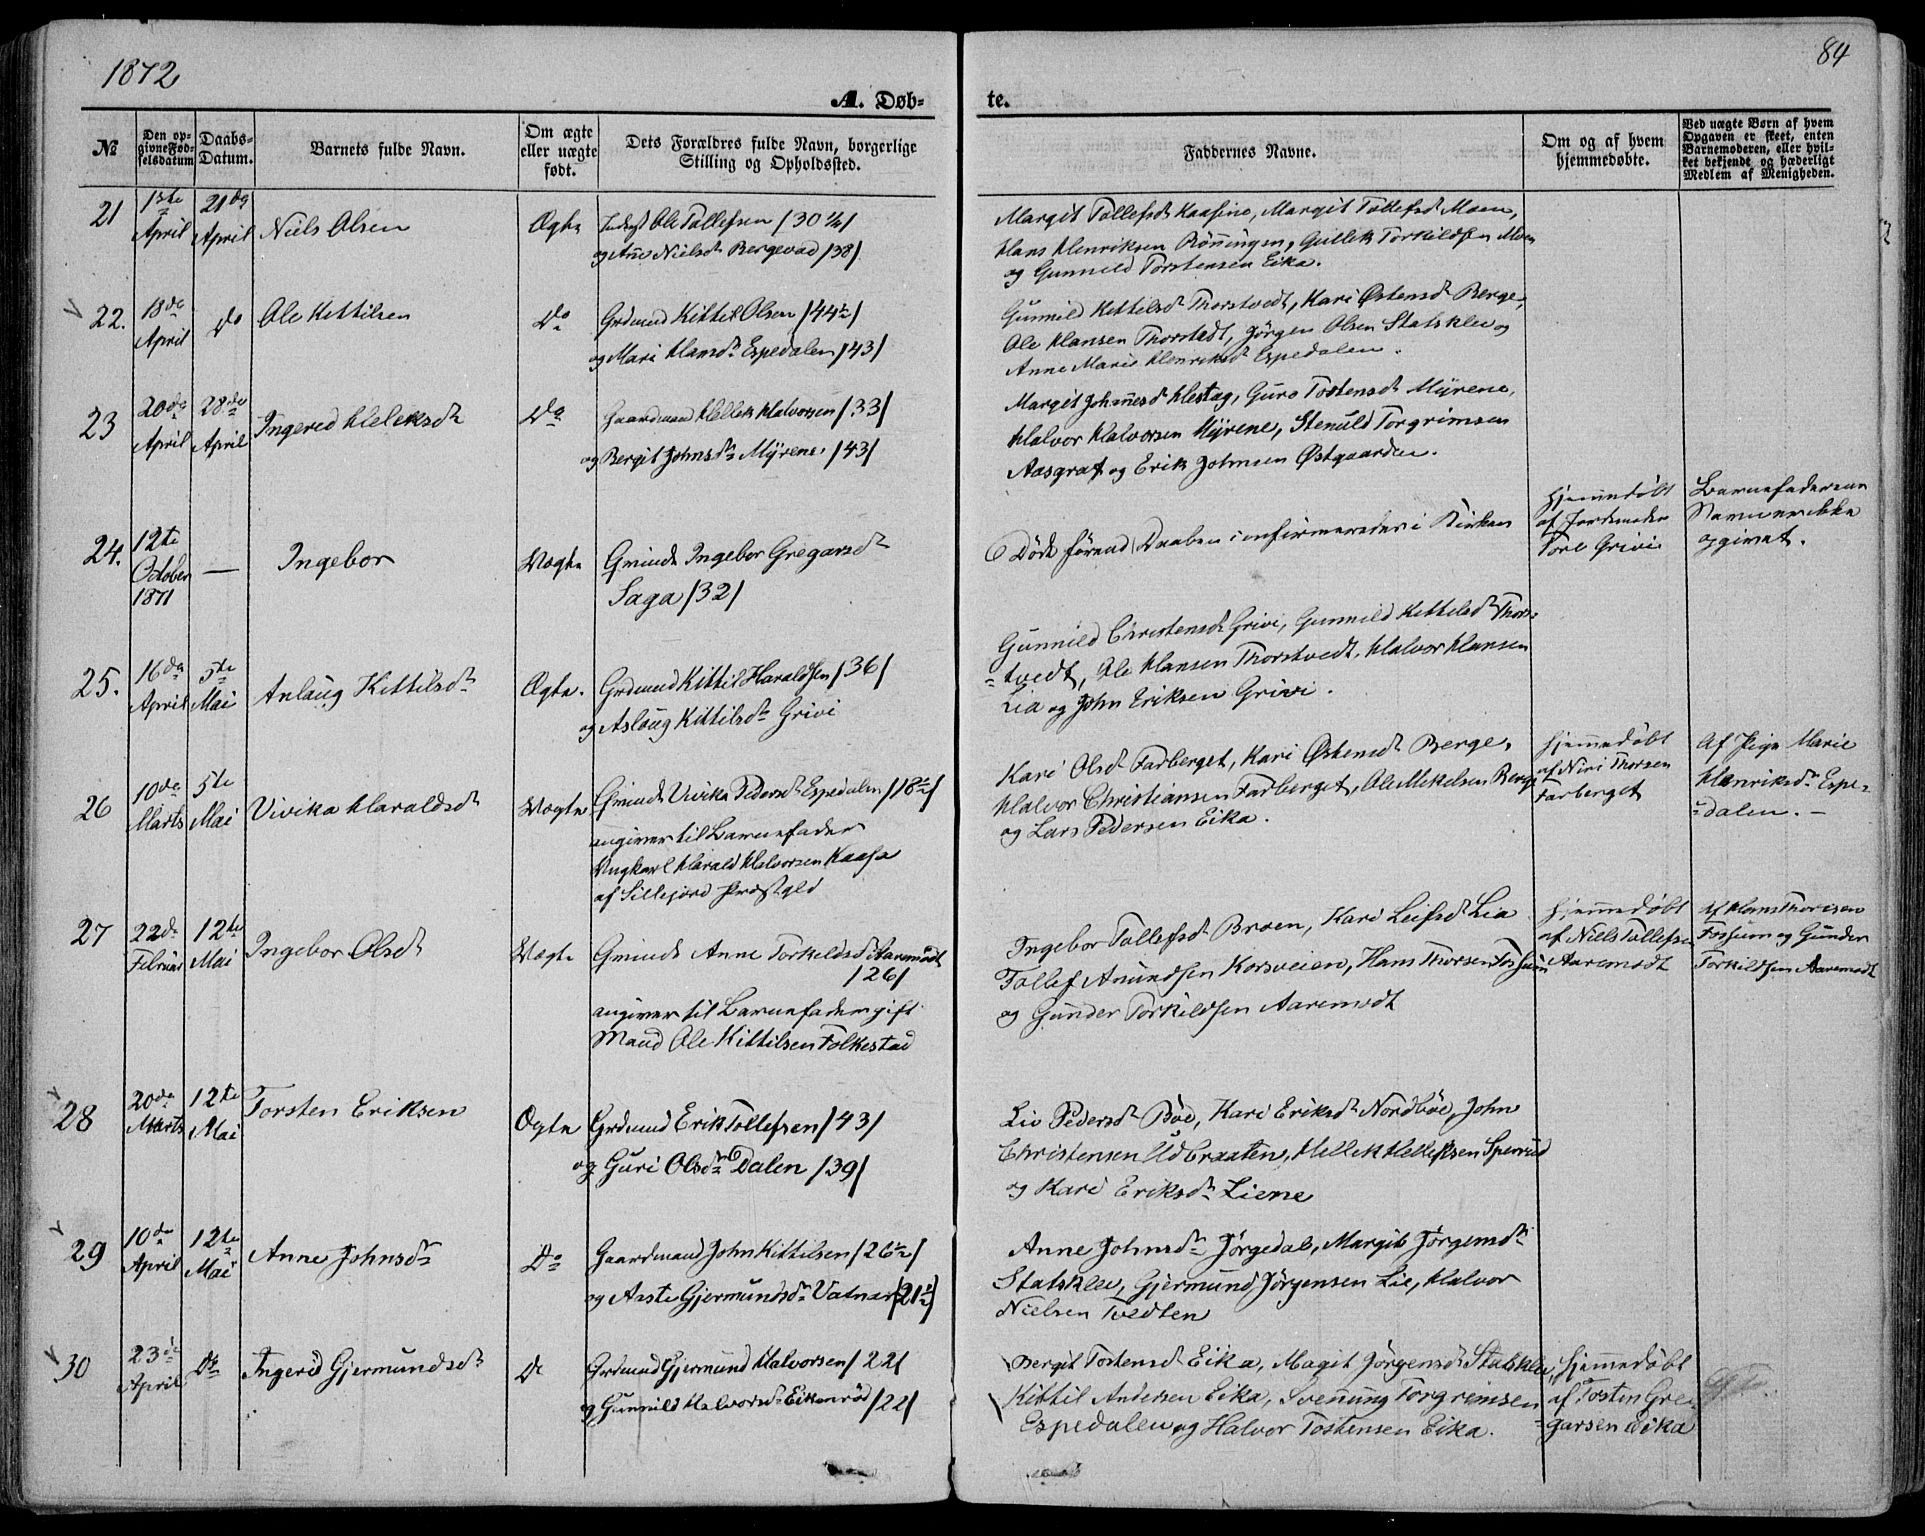 1872
84
A. Døb-
te.
№
Den op-
givne Fød-
selsdatum
Daabs-
Datum.
Barnets fulde Navn.
Om ægte
eller uægte
født.
Dets Forældres fulde Navn, borgerlige
Stilling og Opholdssted.
Faddernes Navne.
Om og af hvem
hjemmedøbte.
Ved uægte Børn af hvem
Opgaven er skeet, enten
Barnemoderen, eller hvil-
ket bekjendt og hæderligt
Medlem af Menigheden.
21
April
21de
April
Niels Olsen
Ægte
Ole Tollefsen /30 ¼/
og Ane Nielsd. Bergevad /38/
Margit Tollefsd Kaasine, Margit Tollefsd Moen,
Hans Henriksen Rönningen, Gullek Torkildsen Moen
og Gunnild Torstensen Eika.
22.
18de
April
do
Ole Kittilsen
Do
Grdmand Kittil Olsen /44½/
og Mari Hansdr Espedalen /43/
Gunnild Kittilsd Thorstvedt, Kari Østensd Berge,
Ole Hansen Thorstedt, Jörgen Olsen Statsklev og
Anne Marie Henriksd Espedalen.
23
20de
April
28de
April
Ingered Heleksdr
Do
Gaardmand Hellek Halvorsen /33/
og Bergit Johnsdr Myrene. /43/
Margit Johnesd Hestag, Guro Tostensd Myrene,
Halvor Halvorsen Myrene, Stenuld Torgrimsen
Aasgraf og Erik Johnsen Østgaarden.
24.
12te
October
1871
—
Ingebor
Uægte
Gminde Ingebor Gregarsdr
Saga /32/
Døde förend Daaben confirmeredes i Kirken
Hjemmedøbt
af Jordemoder
Tore Grivi
Barnefaderens
Navn er ikke
opgivet.
25.
16de
April
5te
Mai
Anlaug Kittilsdr
Ægte.
Grdmand Kittil Haraldsen /36/
og Aslaug Kittilsdr Grivi
Gunnild Christensd Grivi, Gunnild Kittelsd Thors-
-tvedt, Ole Hansen Thorstvedt, Halvor Hansen
Lia og John Eriksen Grivi.
26
10de
Marts
5te
Mai
Vivika Haraldsdr
Uægte
Gminde Vivika Pedersd Espedalen /18½/
angiver til Barnefader
Ungkarl Harald Halvorsen Kaasa
af Sillejord Præstgld
Kari Olsd Farberget, Kari Østensd Berge,
Halvor Christiansen Farberget, Ole Mikelsen Berge
og Lars Pedersen Eika.
Hjemmedøbt
af Niri Thorsen
Farberget
Af Pige Marie
Henriksdr Espe-
-dalen. —
27
22de
Februar
12te
Mai
Ingebor Olsdr
Uægte
Gminde Anne Torkeldsd Aaremodt
/26/
angiver til Barnefader gift
Mand Ole Kittilsen Folkestad
Ingebor Tollefsd Broen, Kari Leifsd Lia
Tollef Amundsen Korsveien, Hans Thorsen Fossum
og Gunder Torkildsen Aaremodt
Hjemmedøbt
af Niels Tollefsen
Aaremodt
af Hans Thoresen
Fossum og Gunder
Torkildsen Aaremodt
28
20de
Marts
12te
Mai
Torsten Eriksen
Ægte
Grdmand Erik Tollefsen /43/
og Guri Olsdr Dalen /39/
Liv Pedersd Bøe, Kari Eriksdr Nordbøe, John
Christensen Udbraaten, Hellek Helleksen Sperrud
og Kari Eriksdr Liene
29
10de
April
12te
Mai
Anne Johnsdr
Do
Gaardmand John Kittilsen /26½/
og Aaste Gjermundsdr Vatnar /21½/
Anne Johnsdr Jörgedal, Margit Jörgensdr
Statsklev, Gjermund Jörgensen Lie, Halvor
Nielsen Tvedten
30
23de
April
Do
Ingerid Gjermundsdr
Do
Grdmand Gjermund Halvorsen /22/
og Gunnild Halvorsdr Eikenröd /22/
Bergit Tostensd Eika, Magit Jörgensd Statsklev,
Kittil Andersen Eika, Svenung Torgrimsen
Espedalen og Halvor Tostensen Eika.
Hjemmedøbt
af Tosten Gre-
-garsen Eika